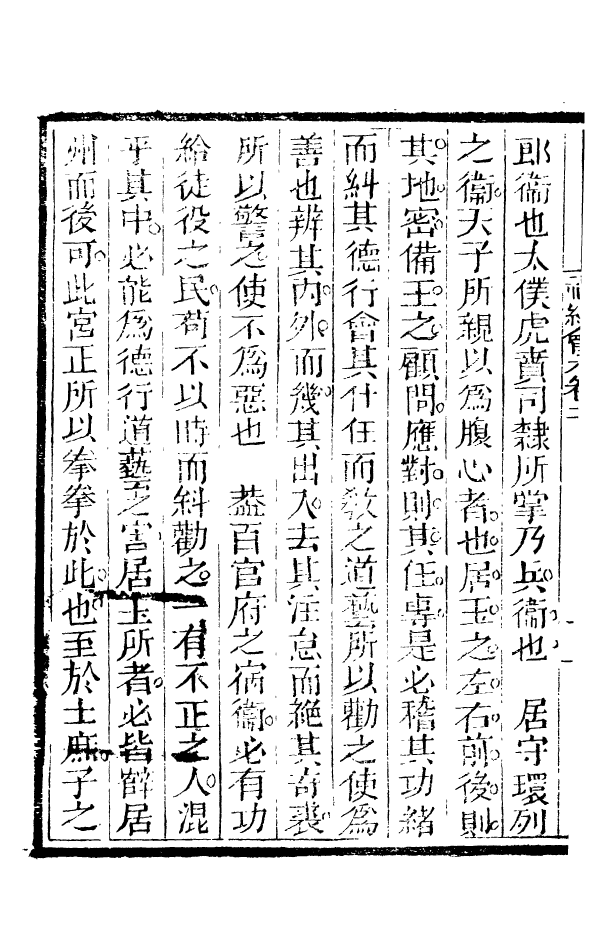 郎衞也太僕虎賁司隸所掌乃兵衞也　居守環列
之衞天子所親以爲腹心者也居王之左右前後則
其地密備王之顧問應對則其任專是必稽其功緒
而糾其德行會其什伍而敎之道藝所以勸之使爲
善也辨其內外而幾其出入去其淫怠而絕其奇衺
所以警之使不爲惡也　葢百官府之宿衞必有功
給徒役之民苟不以時而糾勸之一有不正之人混
乎其中必能爲德行道藝之害居王所者必皆薛居
州而後可此宮正所以拳拳於此也至於士庶子之